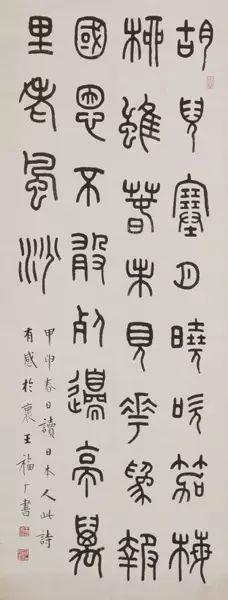 胡兒塞月曉吹笳梅
柳雖春未見華為報
國恩不敢死邊亭萬
里老風沙
甲申春日讀日本人此詩
有感於衷王福厂書